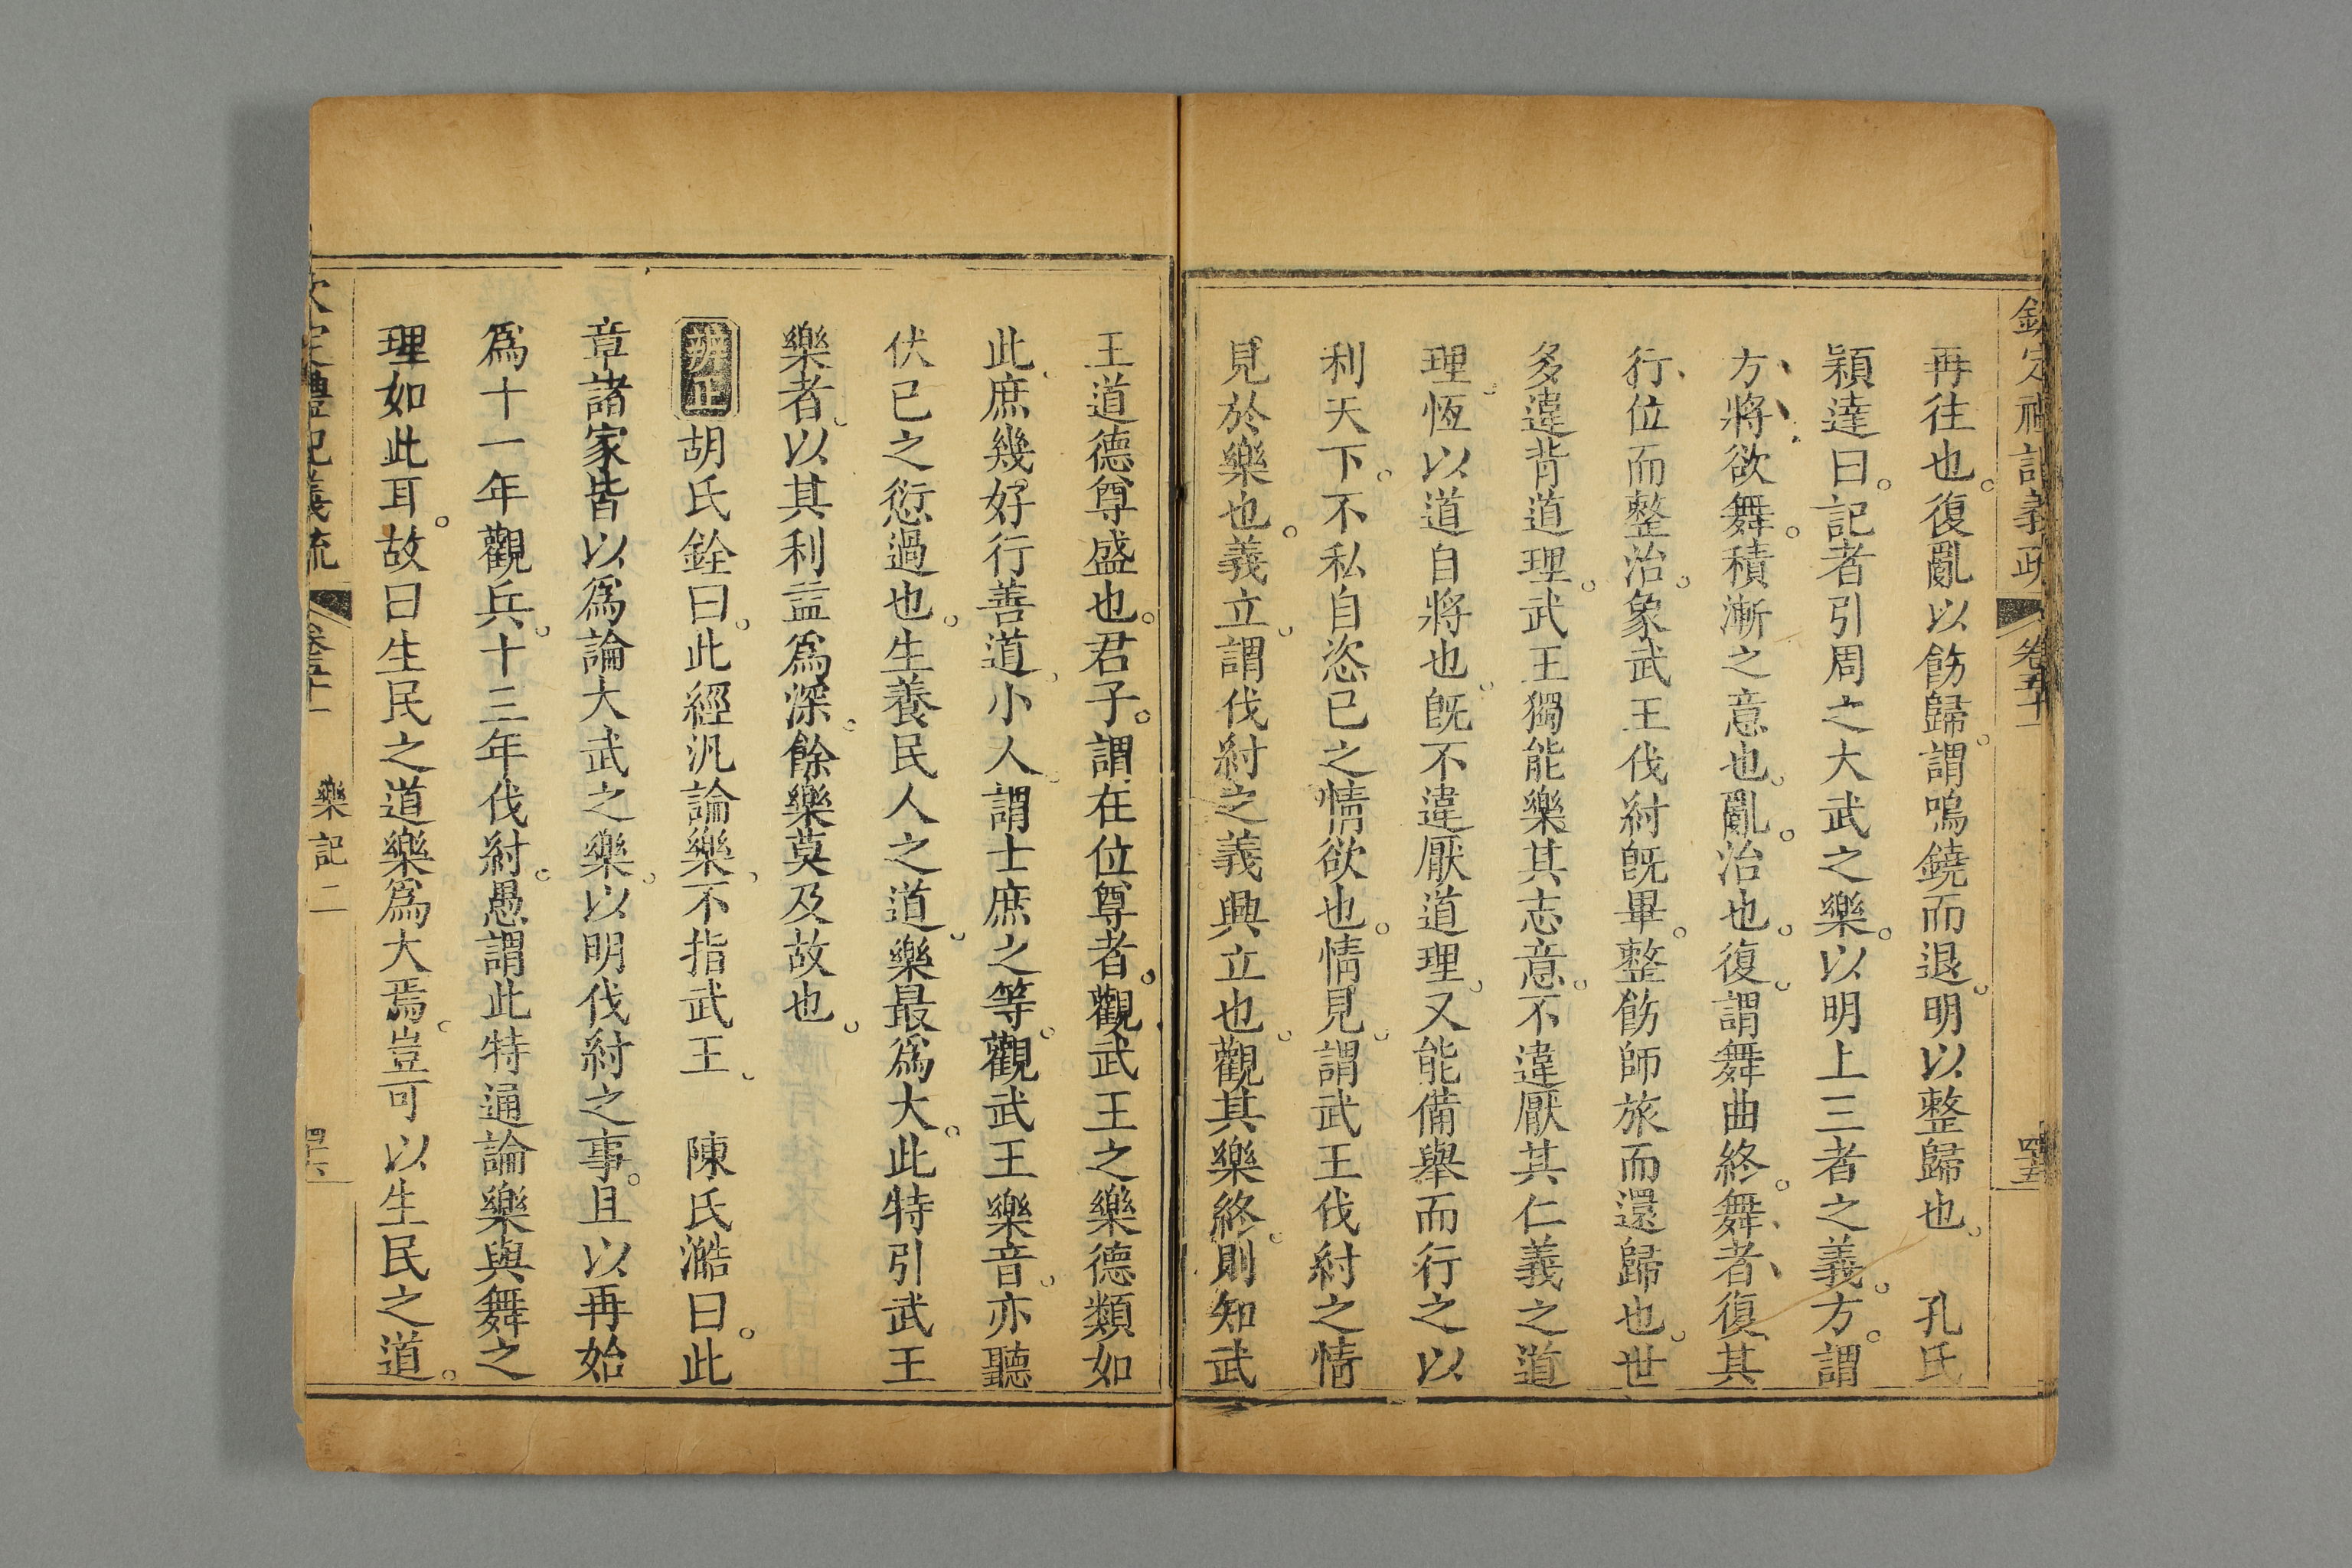 欽定禮記義疏 卷五十一 四十五
再往也復亂以飭歸謂鳴鐃而退明以整歸也 孔氏
穎達曰記者引周之大武之樂以明上三者之義方謂
方將欲舞積漸之意也亂治也復謂舞曲終舞者復其
行位而整治象武王伐紂旣畢整飭師旅而還歸也世
多違背道理武王獨能樂其志意不違厭其仁義之道
理恆以道自將也旣不違厭道理又能備舉而行之以
利天下不私自恣己之情欲也情見謂武王伐紂之情
見於樂也義立謂伐紂之義興立也觀其樂終則知武
王道德尊盛也君子謂在位尊者觀武王之樂德類如
此庶幾好行善道小人謂士庶之等觀武王樂音亦聽
伏己之愆過也生養民人之道樂最爲大此特引武王
樂者以其利益爲深餘樂莫及故也
辨正 胡氏銓曰此經汎論樂不指武王 陳氏澔曰此
章諸家皆以爲論大武之樂以明伐紂之事且以再始
爲十一年觀兵十三年伐紂愚謂此特通論樂與舞之
理如此耳故曰生民之道樂爲大焉豈可以生民之道
欽定禮記義疏 卷五十一 樂記二 四十六